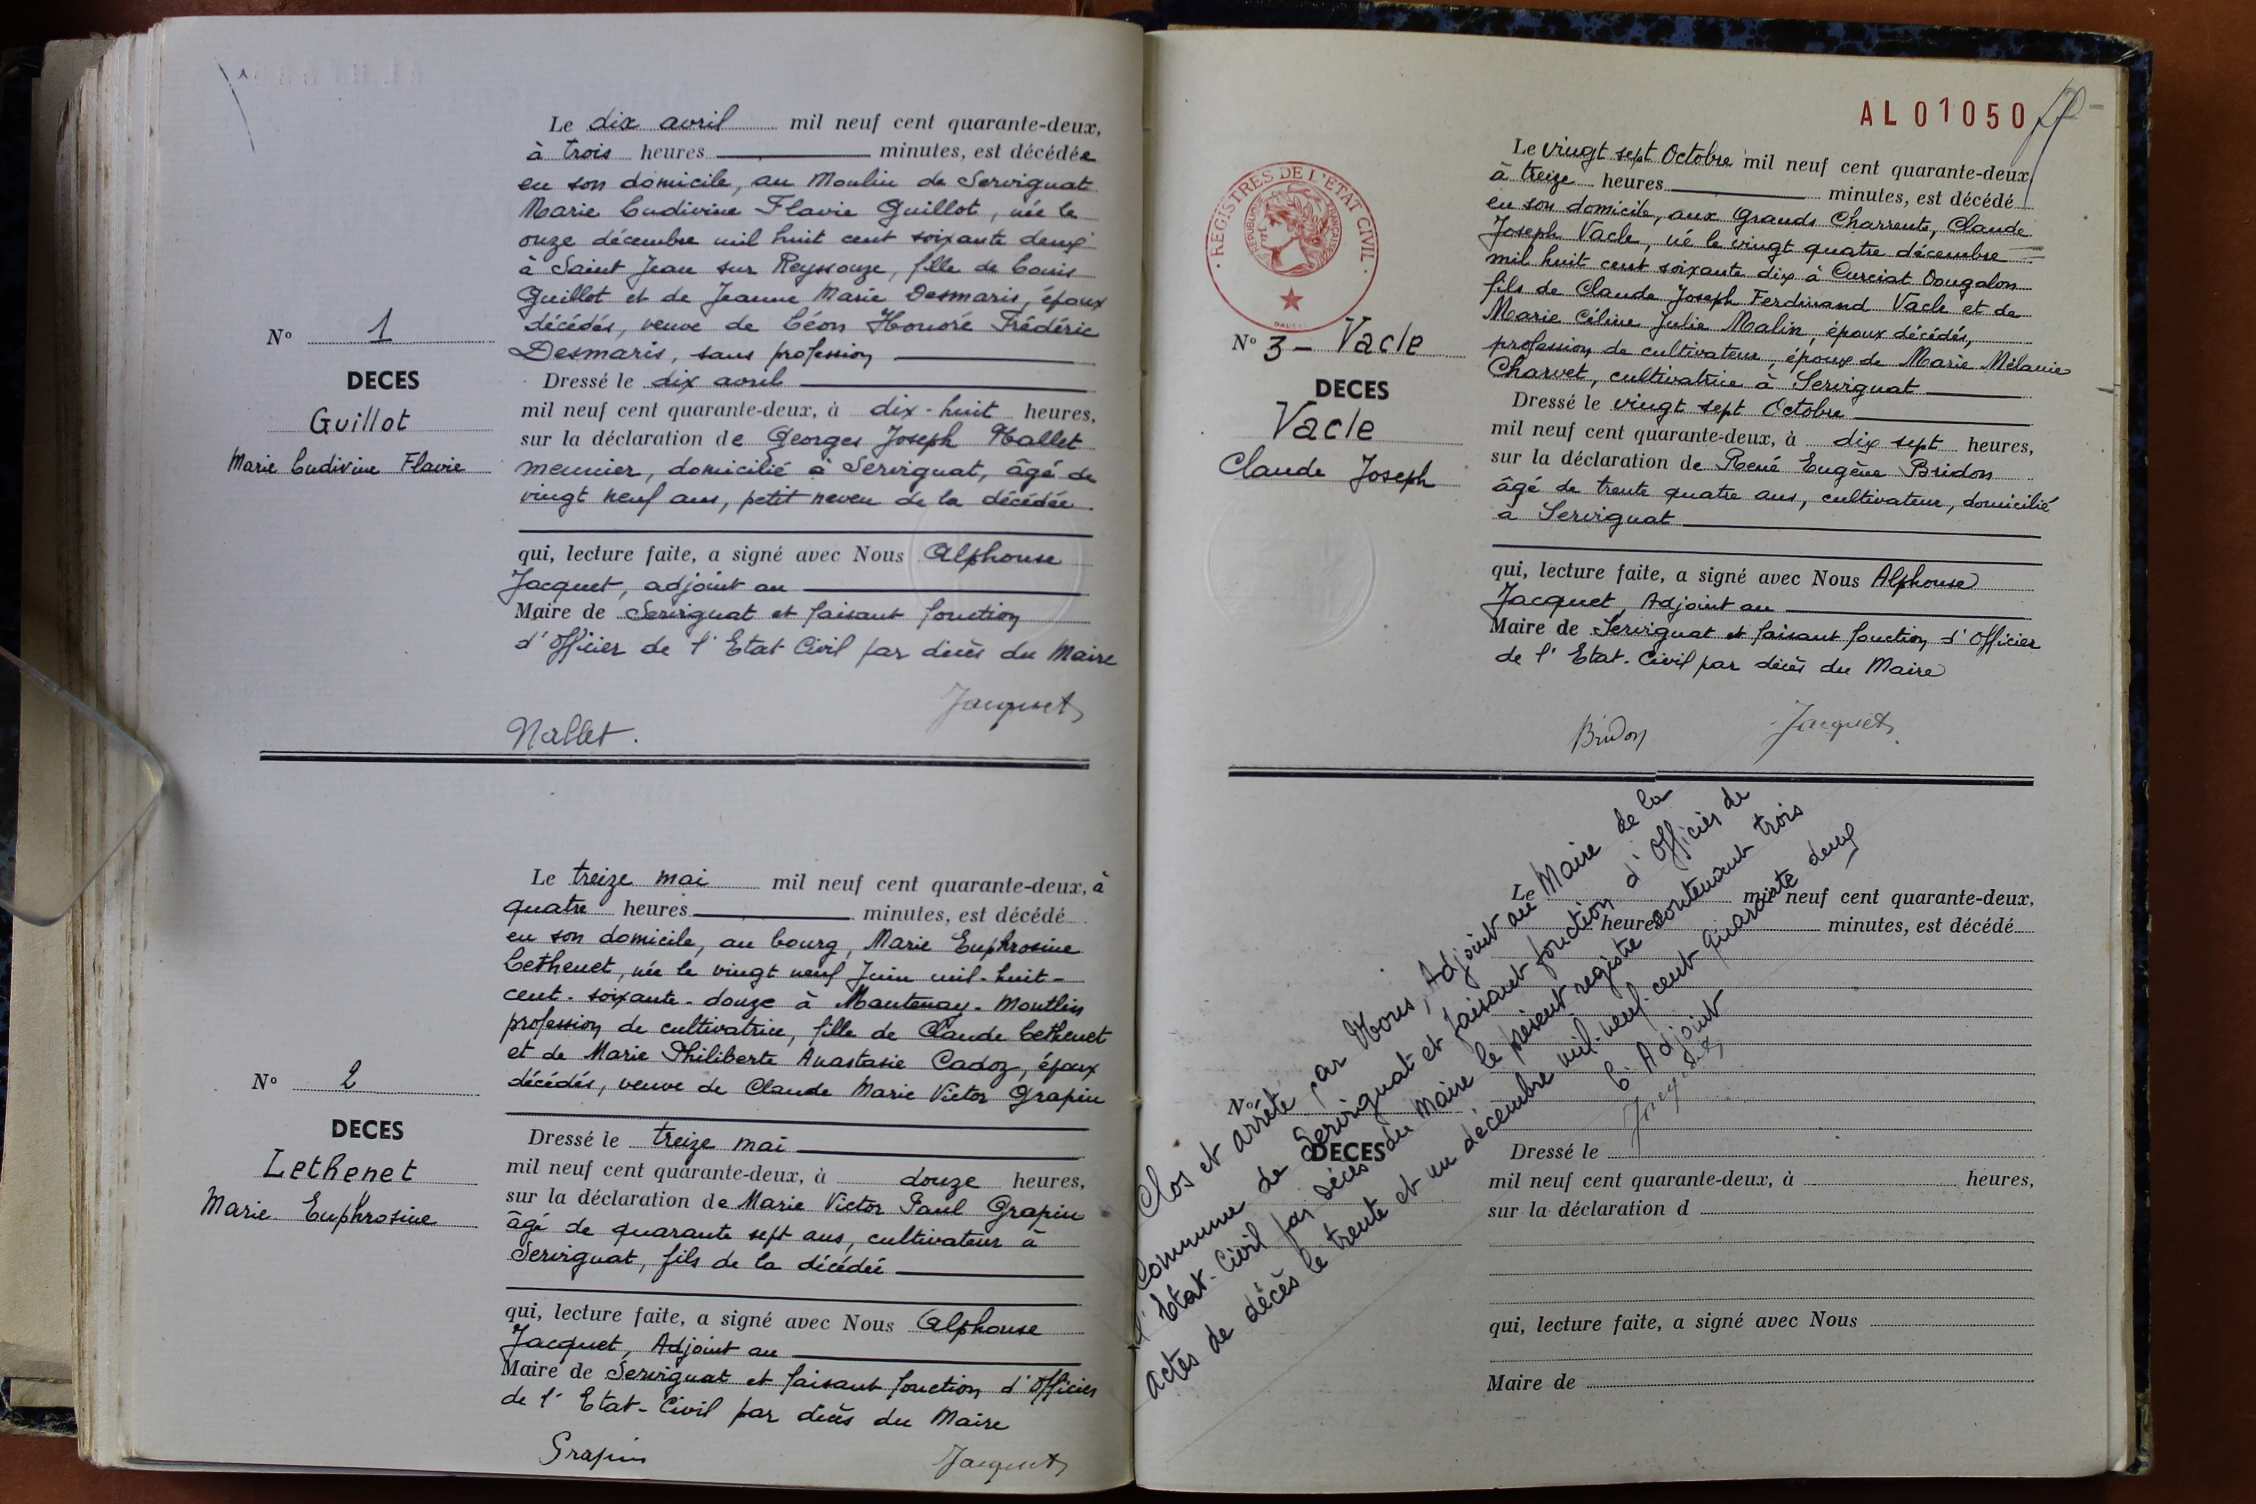 Le dix avril mil neuf cent quarante-deux,
à trois heures minutes, est décédée
en son domicile, au Moulin de Servignat
Marie Ludivine Flavie Guillot, née le
onze décembre mil huit cent soixante deux
à Saint Jean sur Reyssouze, fille de Louis
Guillot et de Jeanne Marie Desmaris, époux
décédés, veuve de Léon Honoré Frédéric
Desmaris, sans profession
N° 1
DECES
Guillot
Marie Ludivine Flavie
Dressé le dix avril
mil neuf cent quarante-deux, à dix-huit heures,
sur la déclaration de Georges Joseph Nallet
meunier, domicilié à Servignat, âgé de
vingt neuf ans, petit neveu de la décédée
qui, lecture faite, a signé avec Nous Alphonse
Jacquet, adjoint au
Maire de Servignat et faisant fonction
d'officier de l'Etat Civil par décès du Maire
Jacquet
Nallet.
Le treize mai mil neuf cent quarante-deux, à
quatre heures minutes, est décédé
en son domicile, au bourg, Marie Euphrosine
Lethenet, née le vingt neuf Juin mil-huit-
cent-soixante-douze à Mantenay-Montlin
profession de cultivatrice, fille de Claude Lethenet
et de Marie Philiberte Anastasie Cadoz, époux
décédés, veuve de Claude Marie Victor Grapin
N° 2
DECES
Lethenet
Marie Euphrosine
Dressé le treize mai
mil neuf cent quarante-deux, à douze heures,
sur la déclaration de Marie Victor Paul Grapin
âgé de quarante sept ans, cultivateur à
Servignat, fils de la décédée
qui, lecture faite, a signé avec Nous Alphonse
Jacquet, Adjoint au
Maire de Servignat et faisant fonction d'Officier
de l'Etat-Civil par décès du Maire
Grapin
Jacquet
AL01050
Le vingt sept Octobre mil neuf cent quarante-deux
à treize heures minutes, est décédé
en son domicile, aux Grands Charrente, Claude
Joseph Vacle, né le vingt quatre décembre
mil huit cent soixante dix à Curciat Dongalon
fils de Claude Joseph Ferdinand Vacle et de
Marie Céline Julie Malin, époux décédés,
profession de cultivateur, époux de Marie Mélanie
Charvet, cultivatrice à Servignat
REGISTRES DE L'ETAT CIVIL
REPUBLIQUE FRANÇAISE
N° 3 - Vacle
DECES
Vacle
Claude Joseph
Dressé le vingt sept Octobre
mil neuf cent quarante-deux, à dix sept heures,
sur la déclaration de René Eugène Bridon
âgé de trente quatre ans, cultivateur, domicilié
à Servignat
qui, lecture faite, a signé avec Nous Alphonse
Jacquet, Adjoint au
Maire de Servignat et faisant fonction d'Officier
de l'Etat-Civil par décès du Maire
Bridon
Jacquet
Clos et arrêté par Nous, Adjoint au Maire de la
Commune de Servignat et faisant fonction d'officier de
l'Etat-Civil par décès du Maire le présent registre contenant trois
actes de décès le trente et un décembre mil-neuf-cent quarante deux
L'Adjoint
Jacquet
Le mil neuf cent quarante-deux,
heures minutes, est décédé
N°
DECES
Dressé le
mil neuf cent quarante-deux, à heures,
sur la déclaration d
qui, lecture faite, a signé avec Nous
Maire de